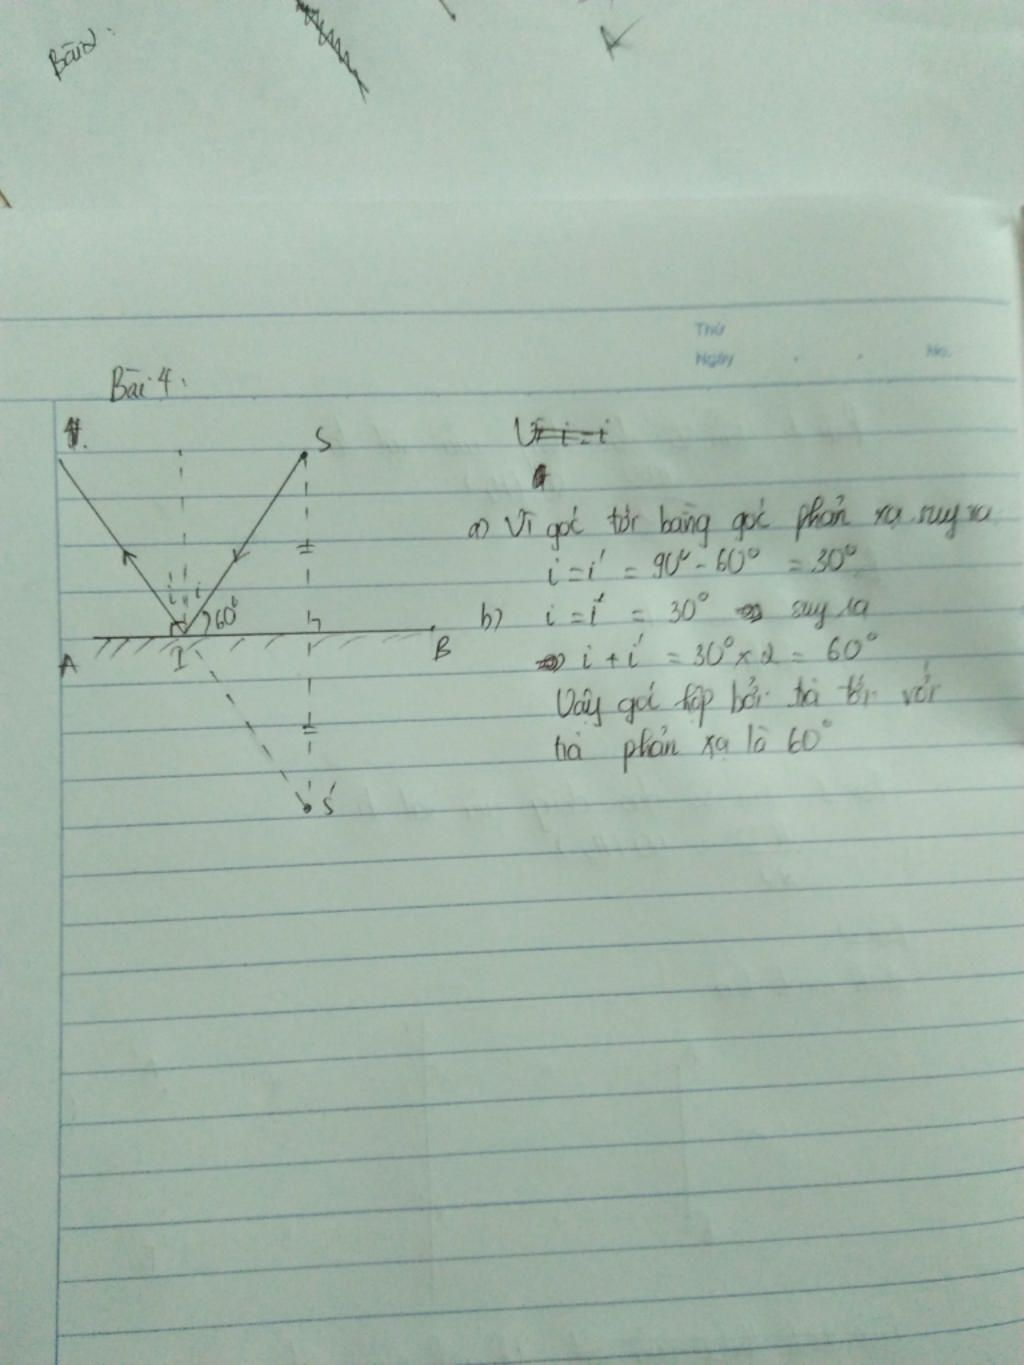 Bài
Thứ
Ngày . . No.
Bài 4:
S
Vì i = i
a) Vì góc tới bằng góc phản xạ suy ra
i = i' = 90° - 60° = 30°
i' i 60°
b) i = i' = 30° suy ra
A I B
=> i + i' = 30° x 2 = 60°
Vậy góc hợp bởi tia tới với
tia phản xạ là 60°
S'